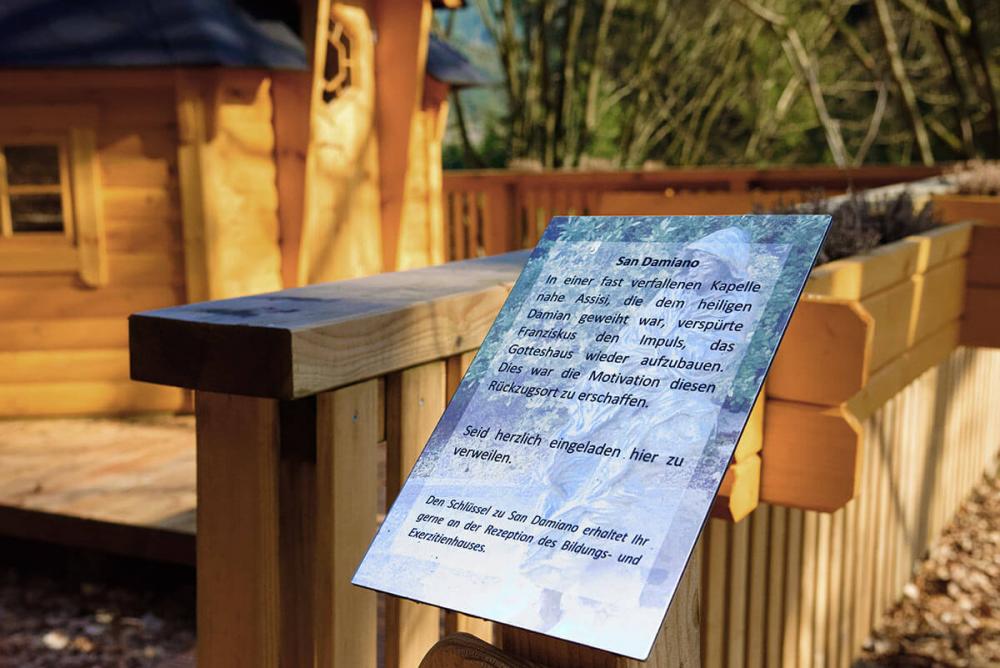 San Damiano
In einer fast verfallenen Kapelle
nahe Assisi, die dem heiligen
Damian geweiht war, verspürte
Franziskus den Impuls, das
Gotteshaus wieder aufzubauen.
Dies war die Motivation diesen
Rückzugsort zu erschaffen.
Seid herzlich eingeladen hier zu
verweilen.
Den Schlüssel zu San Damiano erhaltet Ihr
gerne an der Rezeption des Bildungs- und
Exerzitienhauses.